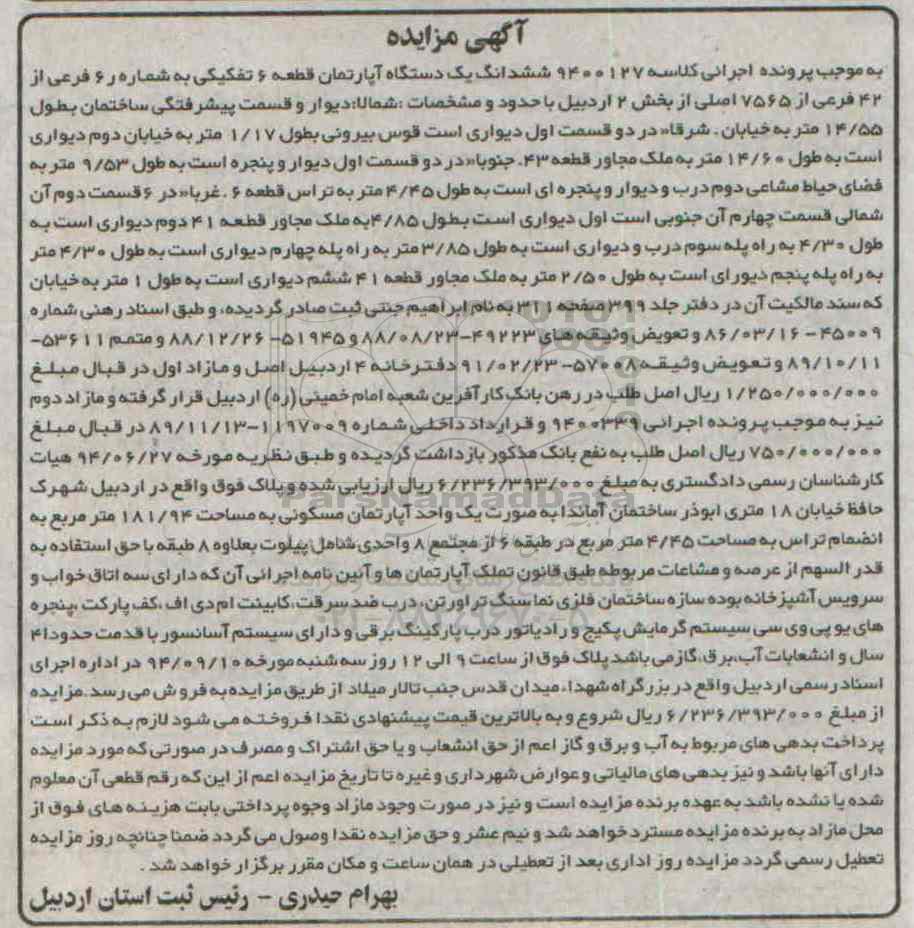 آگهی مزایده
به موجب پرونده اجرائی کلاسه ۹۴۰۰۱۲۷ ششدانگ یک دستگاه آپارتمان قطعه ۶ تفکیکی به شماره ر۶ فرعی از
۴۲ فرعی از ۷۵۶۵ اصلی از بخش ۲ اردبیل با حدود و مشخصات :شمالا:دیوار و قسمت پیشرفتگی ساختمان بطول
۱۴/۵۵ متر به خیابان . شرقا« در دو قسمت اول دیواری است قوس بیرونی بطول ۱/۱۷ متر به خیابان دوم دیواری
است به طول ۱۴/۶۰ متر به ملک مجاور قطعه ۴۳. جنوبا«در دو قسمت اول دیوار و پنجره است به طول ۹/۵۳ متر به
فضای حیاط مشاعی دوم درب و دیوار و پنجره ای است به طول ۴/۴۵ متر به تراس قطعه ۶ . غربا«در ۶ قسمت دوم آن
شمالی قسمت چهارم آن جنوبی است اول دیواری است بطول ۴/۸۵به ملک مجاور قطعه ۴۱ دوم دیواری است به
طول ۴/۳۰ به راه پله سوم درب و دیواری است به طول ۳/۸۵ متر به راه پله چهارم دیواری است به طول ۴/۳۰ متر
به راه پله پنجم دیورای است به طول ۲/۵۰ متر به ملک مجاور قطعه ۴۱ ششم دیواری است به طول ۱ متر به خیابان
که سند مالکیت آن در دفتر جلد ۳۹۹ صفحه ۳۱۱ به نام ابراهیم جنتی ثبت صادر گردیده، و طبق اسناد رهنی شماره
۴۵۰۰۹ – ۸۶/۰۳/۱۶ و تعویض وثیقه های ۴۹۲۲۳–۸۸/۰۸/۲۳ و ۵۱۹۴۵– ۸۸/۱۲/۲۶ و متمم ۵۳۶۱۱–
۸۹/۱۰/۱۱ و تعویض وثیقه ۵۷۰۰۸– ۹۱/۰۲/۲۳ دفترخانه ۴ اردبیل اصل و مازاد اول در قبال مبلغ
۱/۲۵۰/۰۰۰/۰۰۰ ریال اصل طلب در رهن بانک کارآفرین شعبه امام خمینی (ره) اردبیل قرار گرفته و مازاد دوم
نیز به موجب پرونده اجرائی ۹۴۰۰۳۳۹ و قرارداد داخلی شماره ۱۱۹۷۰۰۹–۸۹/۱۱/۱۳ در قبال مبلغ
۷۵۰/۰۰۰/۰۰۰ ریال اصل طلب به نفع بانک مذکور بازداشت گردیده و طبق نظریه مورخه ۹۴/۰۶/۲۷ هیات
کارشناسان رسمی دادگستری به مبلغ ۶/۲۳۶/۳۹۳/۰۰۰ ریال ارزیابی شده و پلاک فوق واقع در اردبیل شهرک
ParsNamadData
حافظ خیابان ۱۸ متری ابوذر ساختمان آماندا به صورت یک واحد آپارتمان مسکونی به مساحت ۱۸۱/۹۴ متر مربع به
انضمام تراس به مساحت ۴/۴۵ متر مربع در طبقه ۶ از مجتمع ۸ واحدی شامل پیلوت بعلاوه ۸ طبقه با حق استفاده به
قدر السهم از عرصه و مشاعات مربوطه طبق قانون تملک آپارتمان ها و آئین نامه اجرائی آن که دارای سه اتاق خواب و
سرویس آشپزخانه بوده سازه ساختمان فلزی نما سنگ تراورتن، درب ضد سرقت،کابینت ام دی اف ،کف پارکت ،پنجره
های یو پی وی سی سیستم گرمایش پکیج و رادیاتور درب پارکینگ برقی و دارای سیستم آسانسور با قدمت حدودا۴
سال و انشعابات آب،برق،گازمی باشد پلاک فوق از ساعت ۹ الی ۱۲ روز سه شنبه مورخه ۹۴/۰۹/۱۰ در اداره اجرای
اسناد رسمی اردبیل واقع در بزرگراه شهدا، میدان قدس جنب تالار میلاد از طریق مزایده به فروش می رسد.مزایده
از مبلغ ۶/۲۳۶/۳۹۳/۰۰۰ ریال شروع و به بالاترین قیمت پیشنهادی نقدا فروخته می شود لازم به ذکر است
پرداخت بدهی های مربوط به آب و برق و گاز اعم از حق انشعاب و یا حق اشتراک و مصرف در صورتی که مورد مزایده
دارای آنها باشد و نیز بدهی های مالیاتی و عوارض شهرداری و غیره تا تاریخ مزایده اعم از این که رقم قطعی آن معلوم
شده یا نشده باشد به عهده برنده مزایده است و نیز در صورت وجود مازاد وجوه پرداختی بابت هزینه های فوق از
محل مازاد به برنده مزایده مسترد خواهد شد و نیم عشر و حق مزایده نقدا وصول می گردد ضمنا چنانچه روز مزایده
تعطیل رسمی گردد مزایده روز اداری بعد از تعطیلی در همان ساعت و مکان مقرر برگزار خواهد شد .
بهرام حیدری – رئیس ثبت استان اردبیل